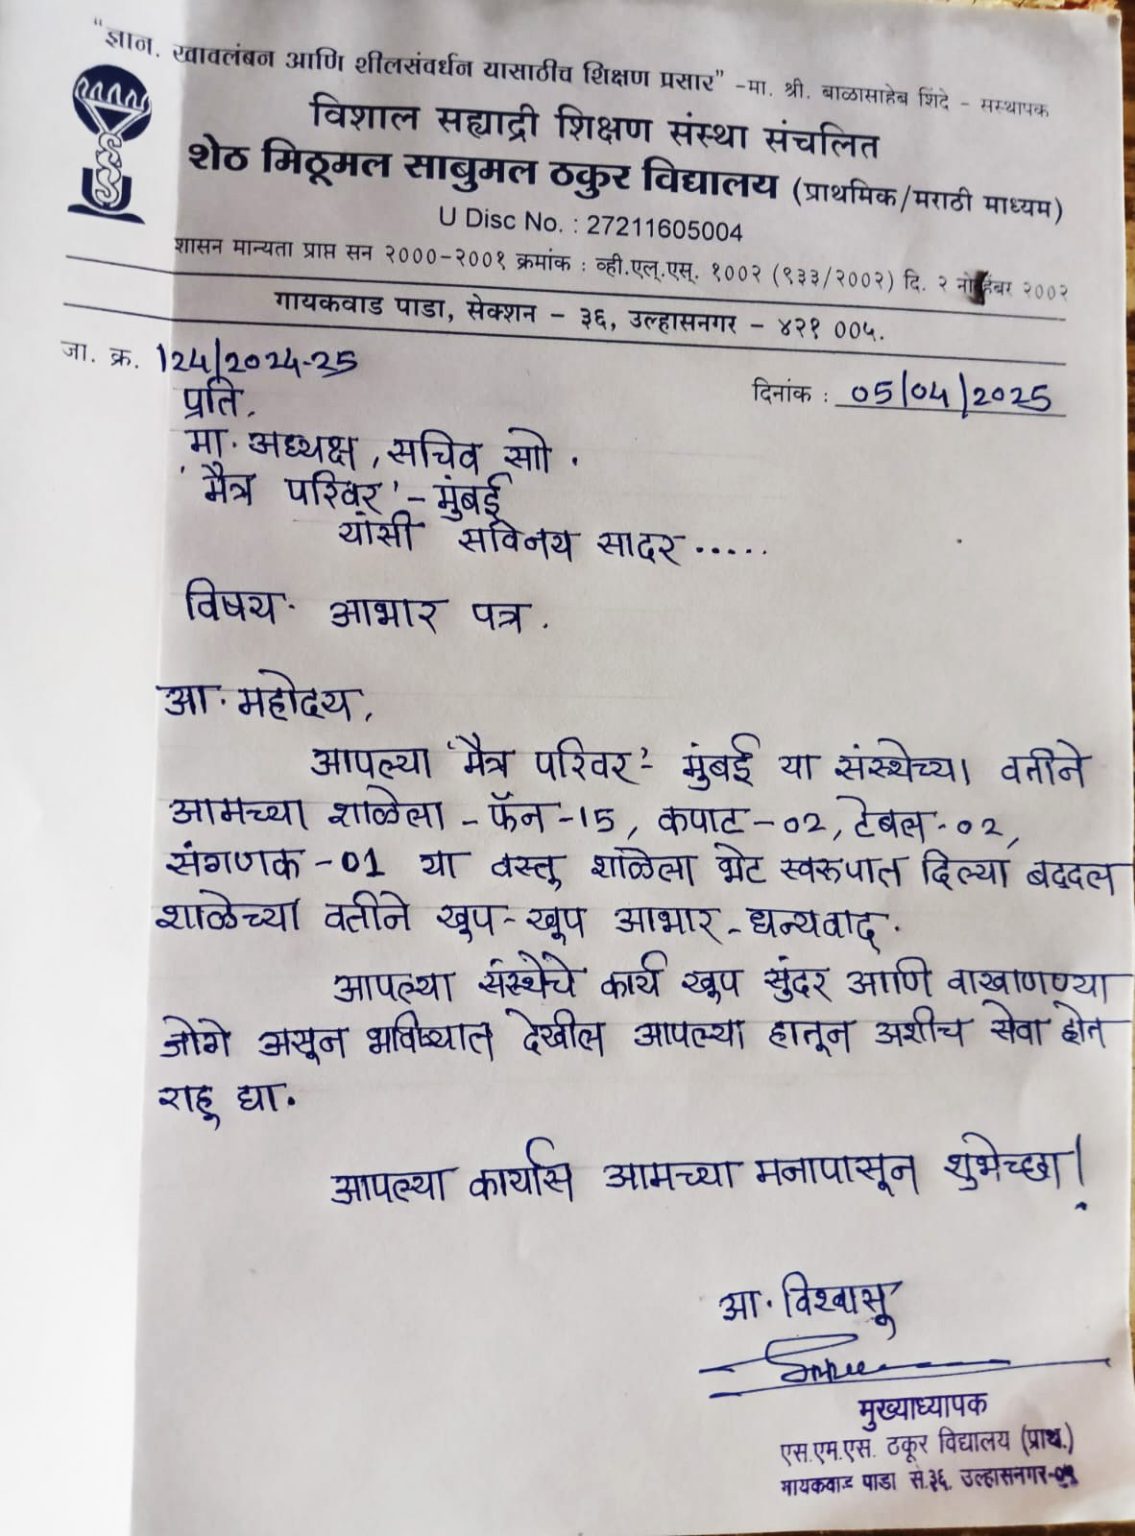 "ज्ञान. स्वावलंबन आणि शीलसंवर्धन यासाठीच शिक्षण प्रसार" -मा. श्री. बाळासाहेब शिंदे - सस्थापक
विशाल सह्याद्री शिक्षण संस्था संचलित
शेठ मिठूमल साबुमल ठकुर विद्यालय (प्राथमिक/मराठी माध्यम)
U Disc No. : 27211605004
शासन मान्यता प्राप्त सन २०००-२००१ क्रमांक : व्ही.एल्.एस्. १००२ (९३३/२००२) दि. २ नोव्हेंबर २००२
गायकवाड पाडा, सेक्शन - ३६, उल्हासनगर - ४२१ ००५.
जा. क्र. 124/2024-25
दिनांक : 05/04/2025
प्रति,
मा. अध्यक्ष, सचिव सो.
'मैत्र परिवर' - मुंबई
यांसी सविनय सादर.....
विषय. आभार पत्र.
आ. महोदय,
आपल्या 'मैत्र परिवर' - मुंबई या संस्थेच्या वतीने
आमच्या शाळेला - फॅन -15, कपाट-02, टेबल-02,
संगणक -01 या वस्तू शाळेला भेट स्वरुपात दिल्या बद्दल
शाळेच्या वतीने खूप-खूप आभार - धन्यवाद.
आपल्या संस्थेचे कार्य खूप सुंदर आणि वाखाणण्या
जोगे असून भविष्यात देखील आपल्या हातून अशीच सेवा होत
राहु द्या.
आपल्या कार्यास आमच्या मनापासून शुभेच्छा!
आ. विश्वासू
मुख्याध्यापक
एस.एम.एस. ठकूर विद्यालय (प्राथ.)
गायकवाड पाडा से.३६, उल्हासनगर-०५